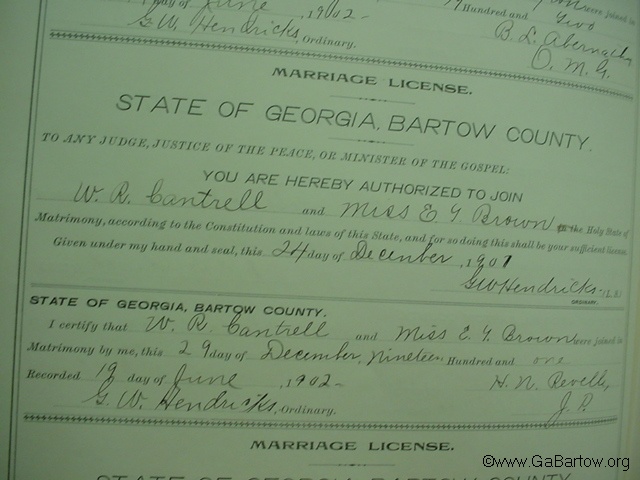 day of June , 1902
Hundred and Two
G. W. Hendricks, Ordinary.
B. L. Abernathy
O. M. G.
MARRIAGE LICENSE.
STATE OF GEORGIA, BARTOW COUNTY.
TO ANY JUDGE, JUSTICE OF THE PEACE, OR MINISTER OF THE GOSPEL:
YOU ARE HEREBY AUTHORIZED TO JOIN
W. R. Cantrell and Miss E Y Brown in the Holy State of
Matrimony, according to the Constitution and laws of this State, and for so doing this shall be your sufficient license.
Given under my hand and seal, this 24 day of December , 1901
G W Hendricks
ORDINARY.
STATE OF GEORGIA, BARTOW COUNTY.
I certify that W. R. Cantrell and Miss E. Y. Brown were joined in
Matrimony by me, this 29 day of December, Nineteen Hundred and one
Recorded 19 day of June , 1902 H. N. Revells,
G. W. Hendricks, Ordinary. J. P.
MARRIAGE LICENSE.
STATE OF GEORGIA, BARTOW COUNTY.
©www.GaBartow.org